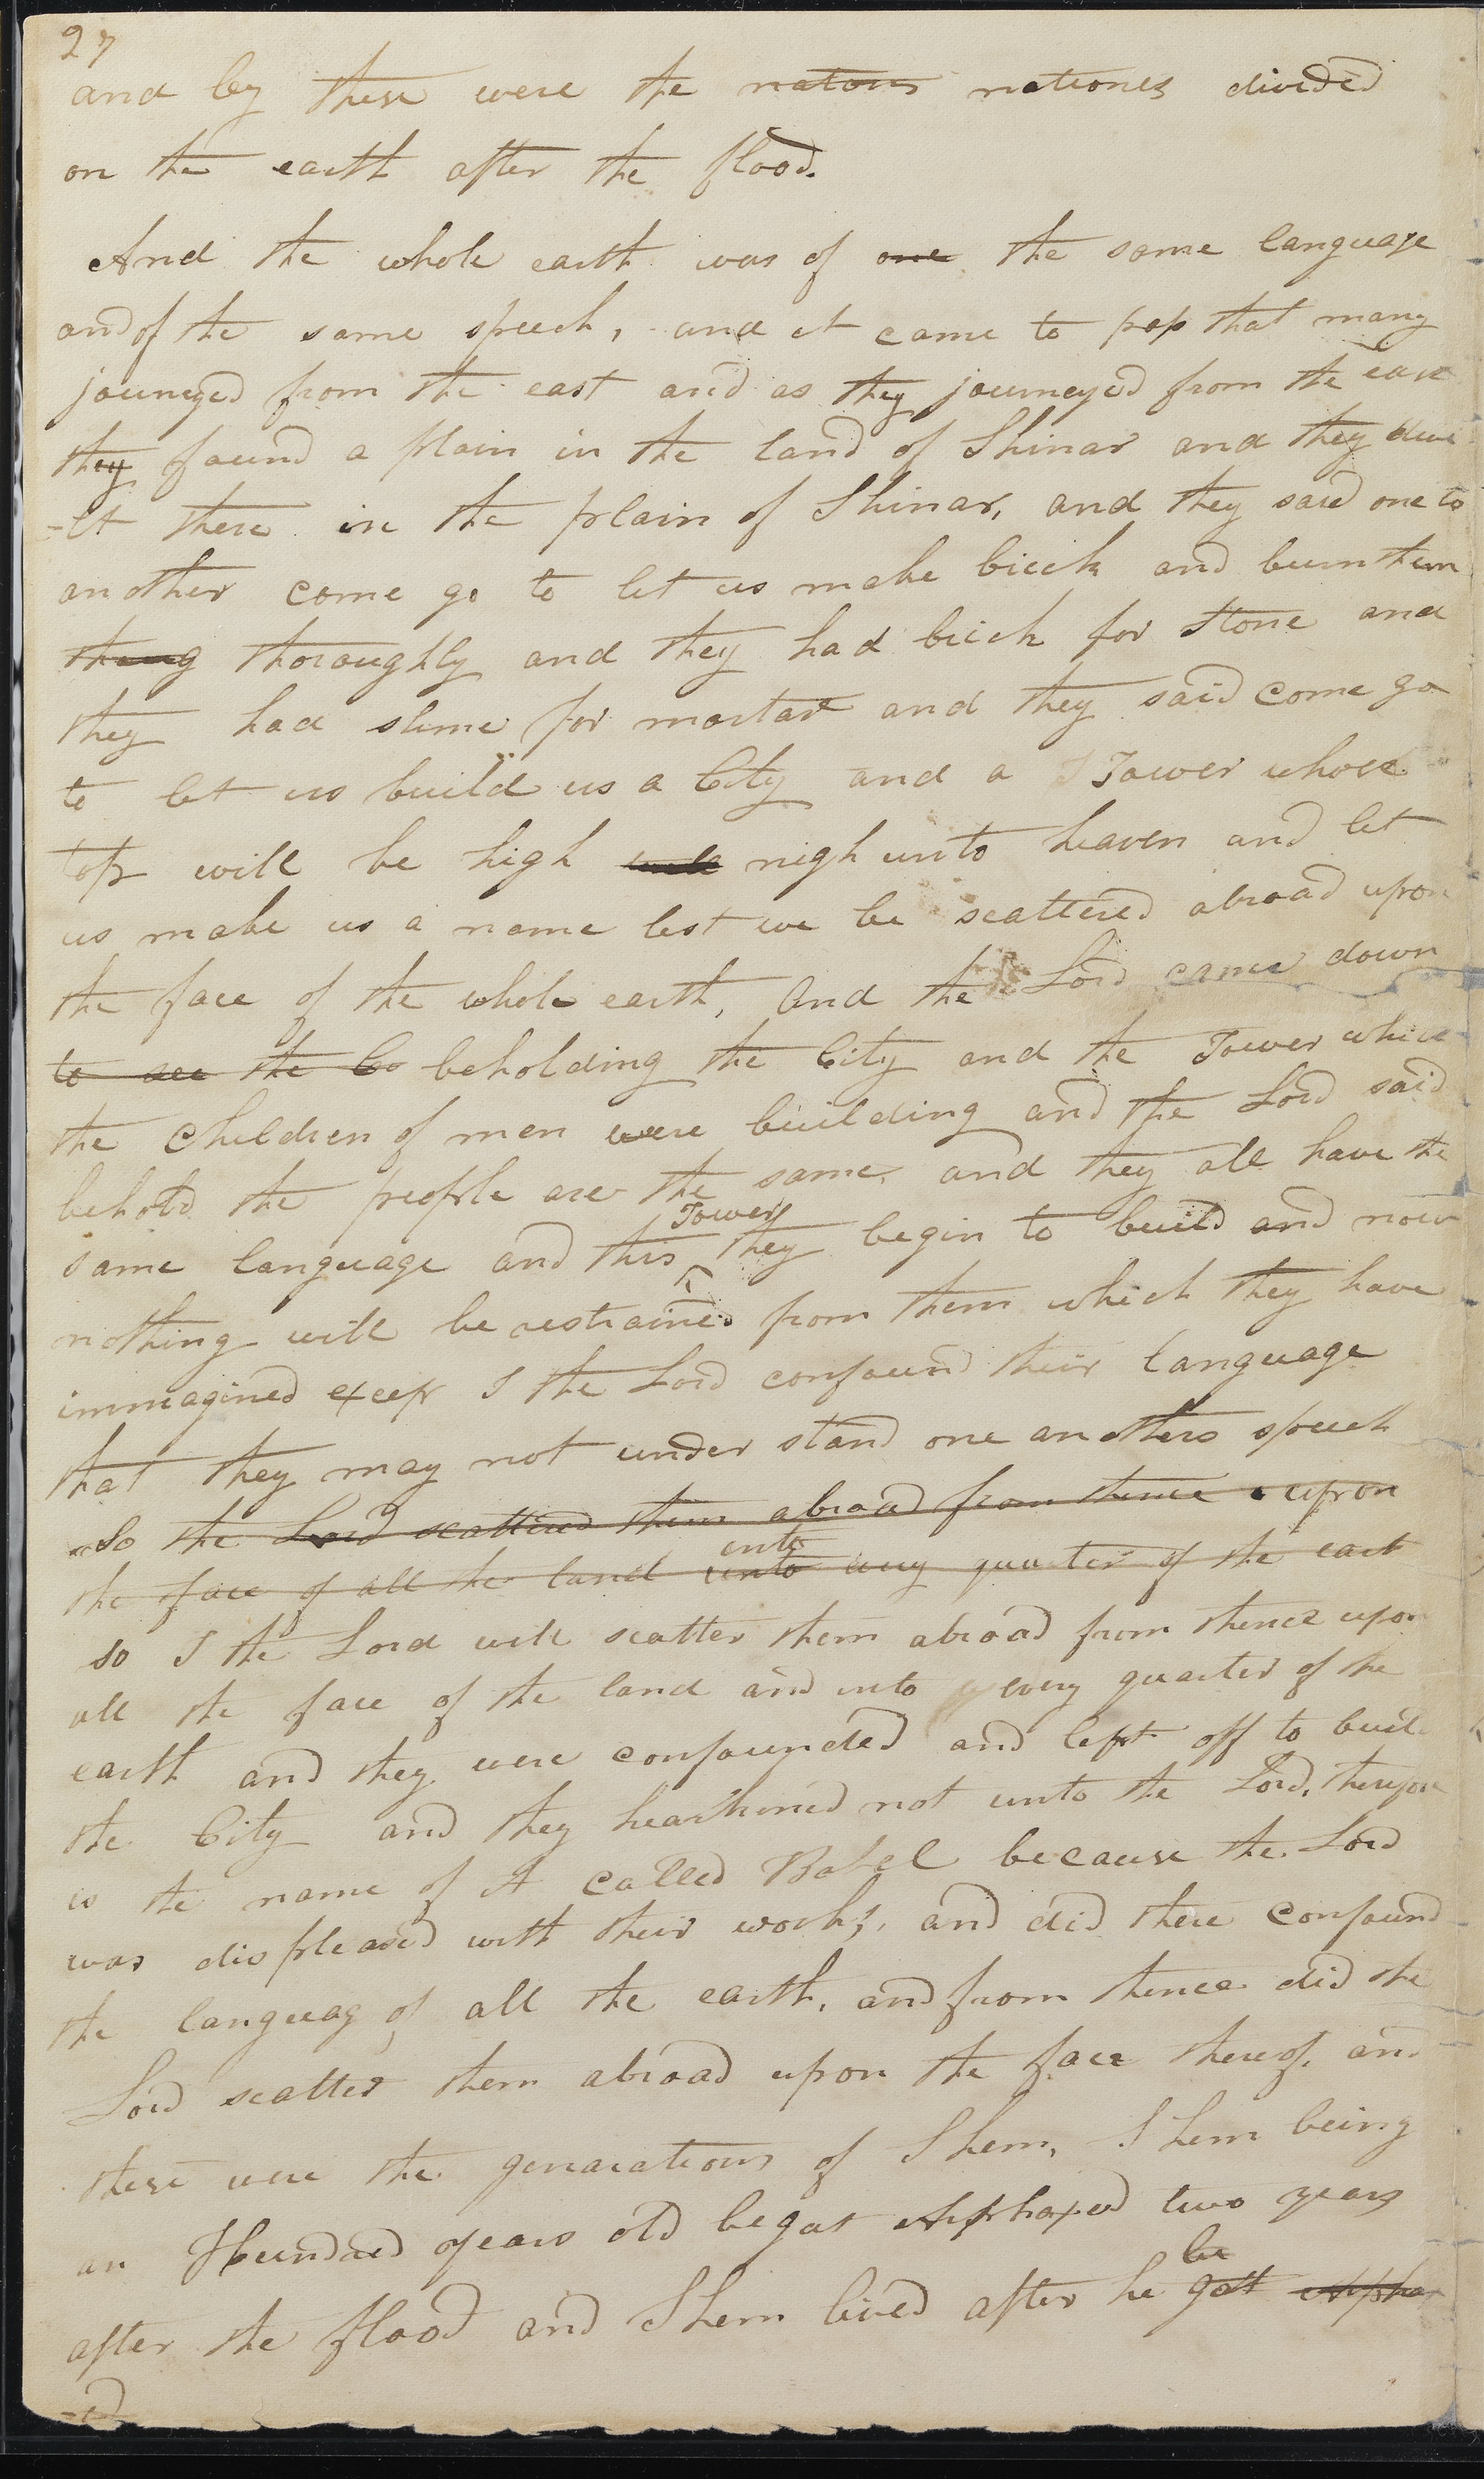 27
and by these were the natons nationes divided
on the earth after the flood.
And the whole earth was of one the same language
and of the same speech, and it came to pass that many
jouneyed from the east and as they journeyed from the east
they found a plain in the land of Shinar and they dwe
-lt there in the plain of Shinar, and they said one to
another come go to let us make brick and burn them
thoroughly and they had brick for stone and
they had slime for mortar and they said come go
to let us build us a City and a Tower whose
top will be high nigh unto heaven and let
us make us a name lest we be scattered abroad upon
the face of the whole earth, and the Lord came down
to see the Co beholding the City and the Tower which
the children of men were building and the Lord said
behold the people are the same and they all have the
same language and this Tower they begin to build and now
nothing will be restrained from them which they have
immagined excep I the Lord confound their language
that they may not under stand one anothers speech
So the Lord scattered them abroad from thence upon
the face of all the land unto into every quarter of the eart
so I the Lord will scatter them abroad from thence upon
all the face of the land and into every quarter of the
earth and they were confounded and left off to build
the City and they hearkened not unto the Lord, therefore
is the name of it called Babel because the Lord
was displeased with their works, and did there confound
the languag of all the earth, and from thence did the
Lord scatter them abroad upon the face thereof, and
these were the genarations of Shem, Shem being
an Hundred years old begat Arphaxed two years
after the flood and Shem lived after he be gat Arphax
-ed